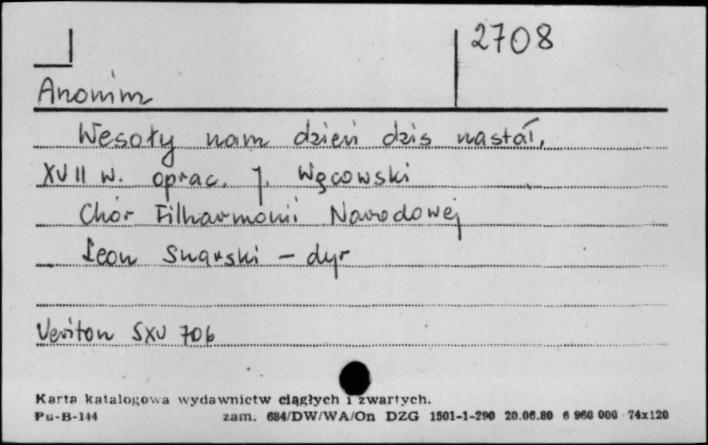 2708
Anonim
Wesoły nam dzień dziś nastał,
XVII w. oprac. J. Węcowski
Chór Filharmonii Narodowej
Leon Snarski – dyr
Veriton SXV 706
Karta katalogowa wydawnictw ciągłych i zwartych.
Pu-B-144 zam. 684/DW/WA/On DZG 1501-1-290 20.06.80 6 960 000 74x120